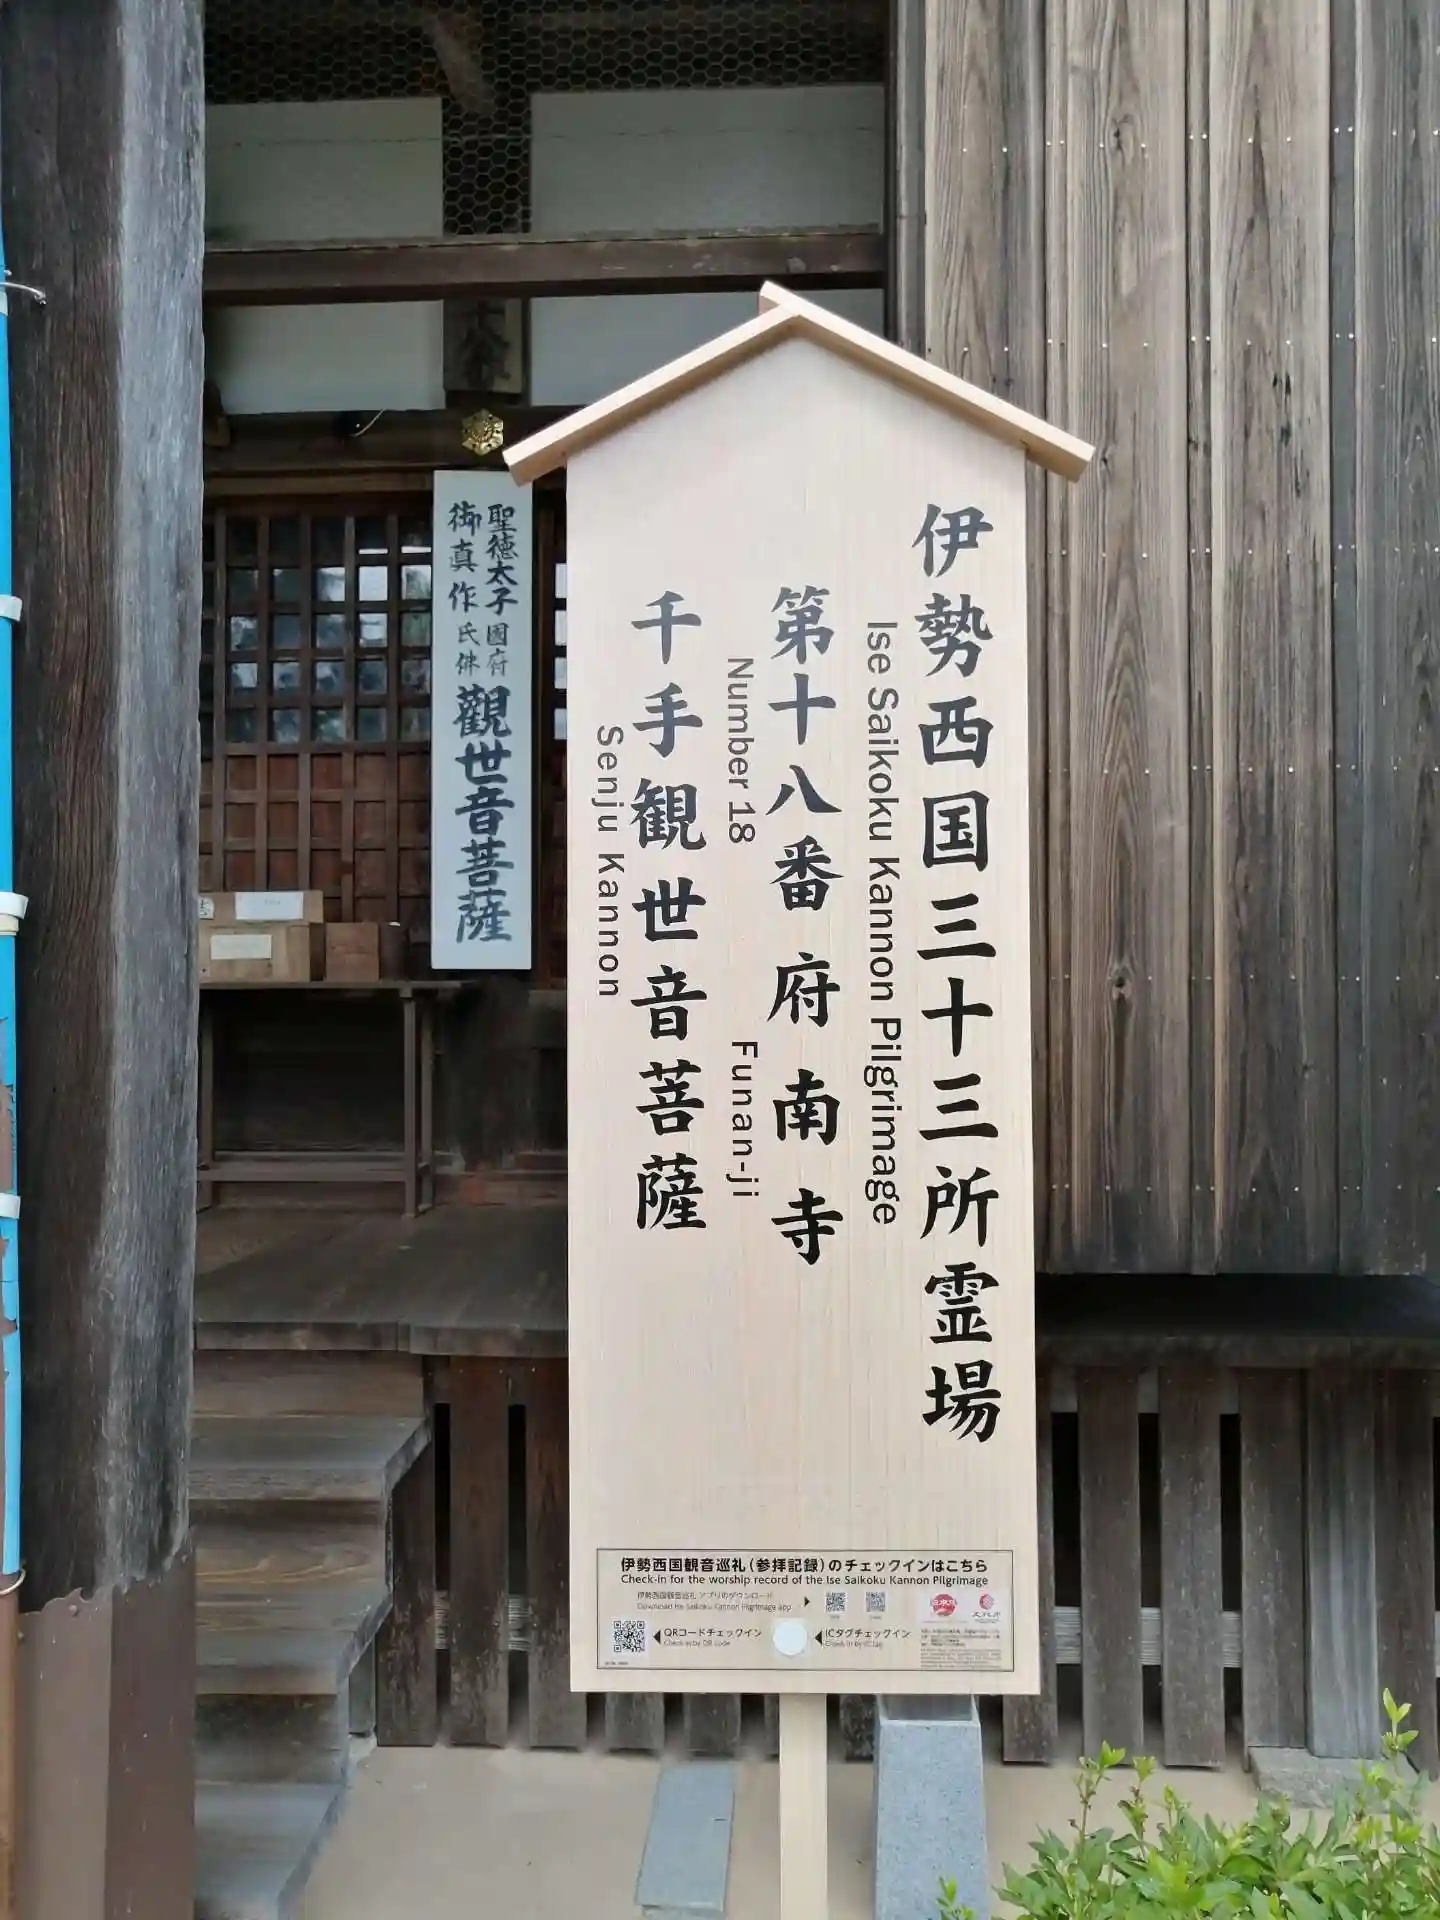 伊勢西国三十三所霊場
Ise Saikoku Kannon Pilgrimage
第十八番 府南寺
Number 18 Funan-ji
千手観世音菩薩
Senju Kannon
聖徳太子
御真作
國府
観世音菩薩
伊勢西国観音巡礼(参拝記録)のチェックインはこちら
Check-in for the worship record of the Ise Saikoku Kannon Pilgrimage
伊勢西国観音巡礼 アプリのダウンロード
Download Ise Saikoku Kannon Pilgrimage app
QRコードチェックイン
Check-in by QR code
ICタグチェックイン
Check-in by IC tag